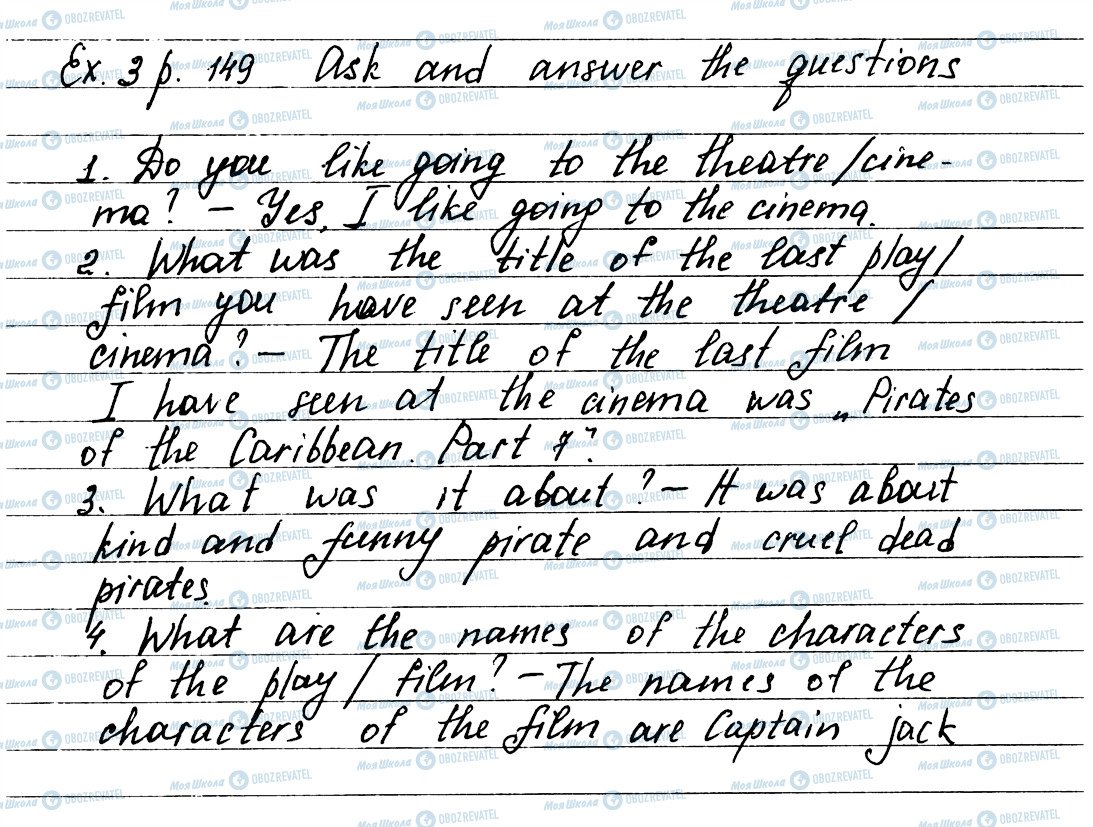 Ex. 3 p. 149 Ask and answer the questions
1. Do you like going to the theatre/cine-
ma? – Yes, I like going to the cinema.
2. What was the title of the last play/
film you have seen at the theatre /
cinema? – The title of the last film
I have seen at the cinema was „Pirates
of the Caribbean. Part 7".
3. What was it about? – It was about
kind and funny pirate and cruel dead
pirates.
4. What are the names of the characters
of the play / film? – The names of the
characters of the film are Captain jack